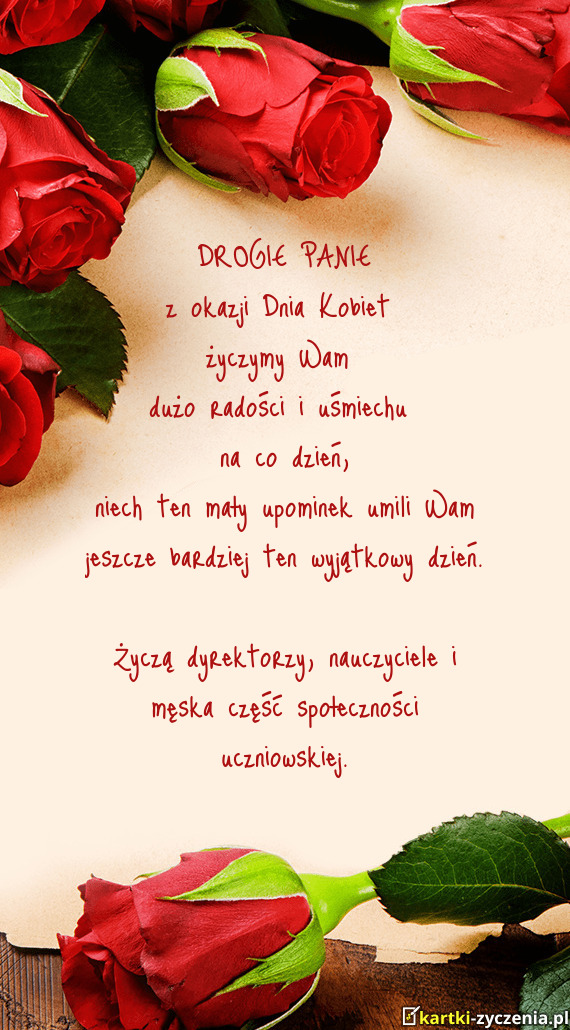 DROGIE PANIE
z okazji Dnia Kobiet
życzymy Wam
dużo radości i uśmiechu
na co dzień,
niech ten mały upominek umili Wam
jeszcze bardziej ten wyjątkowy dzień.
Życzą dyrektorzy, nauczyciele i
męska część społeczności
uczniowskiej.
kartki-zyczenia.pl